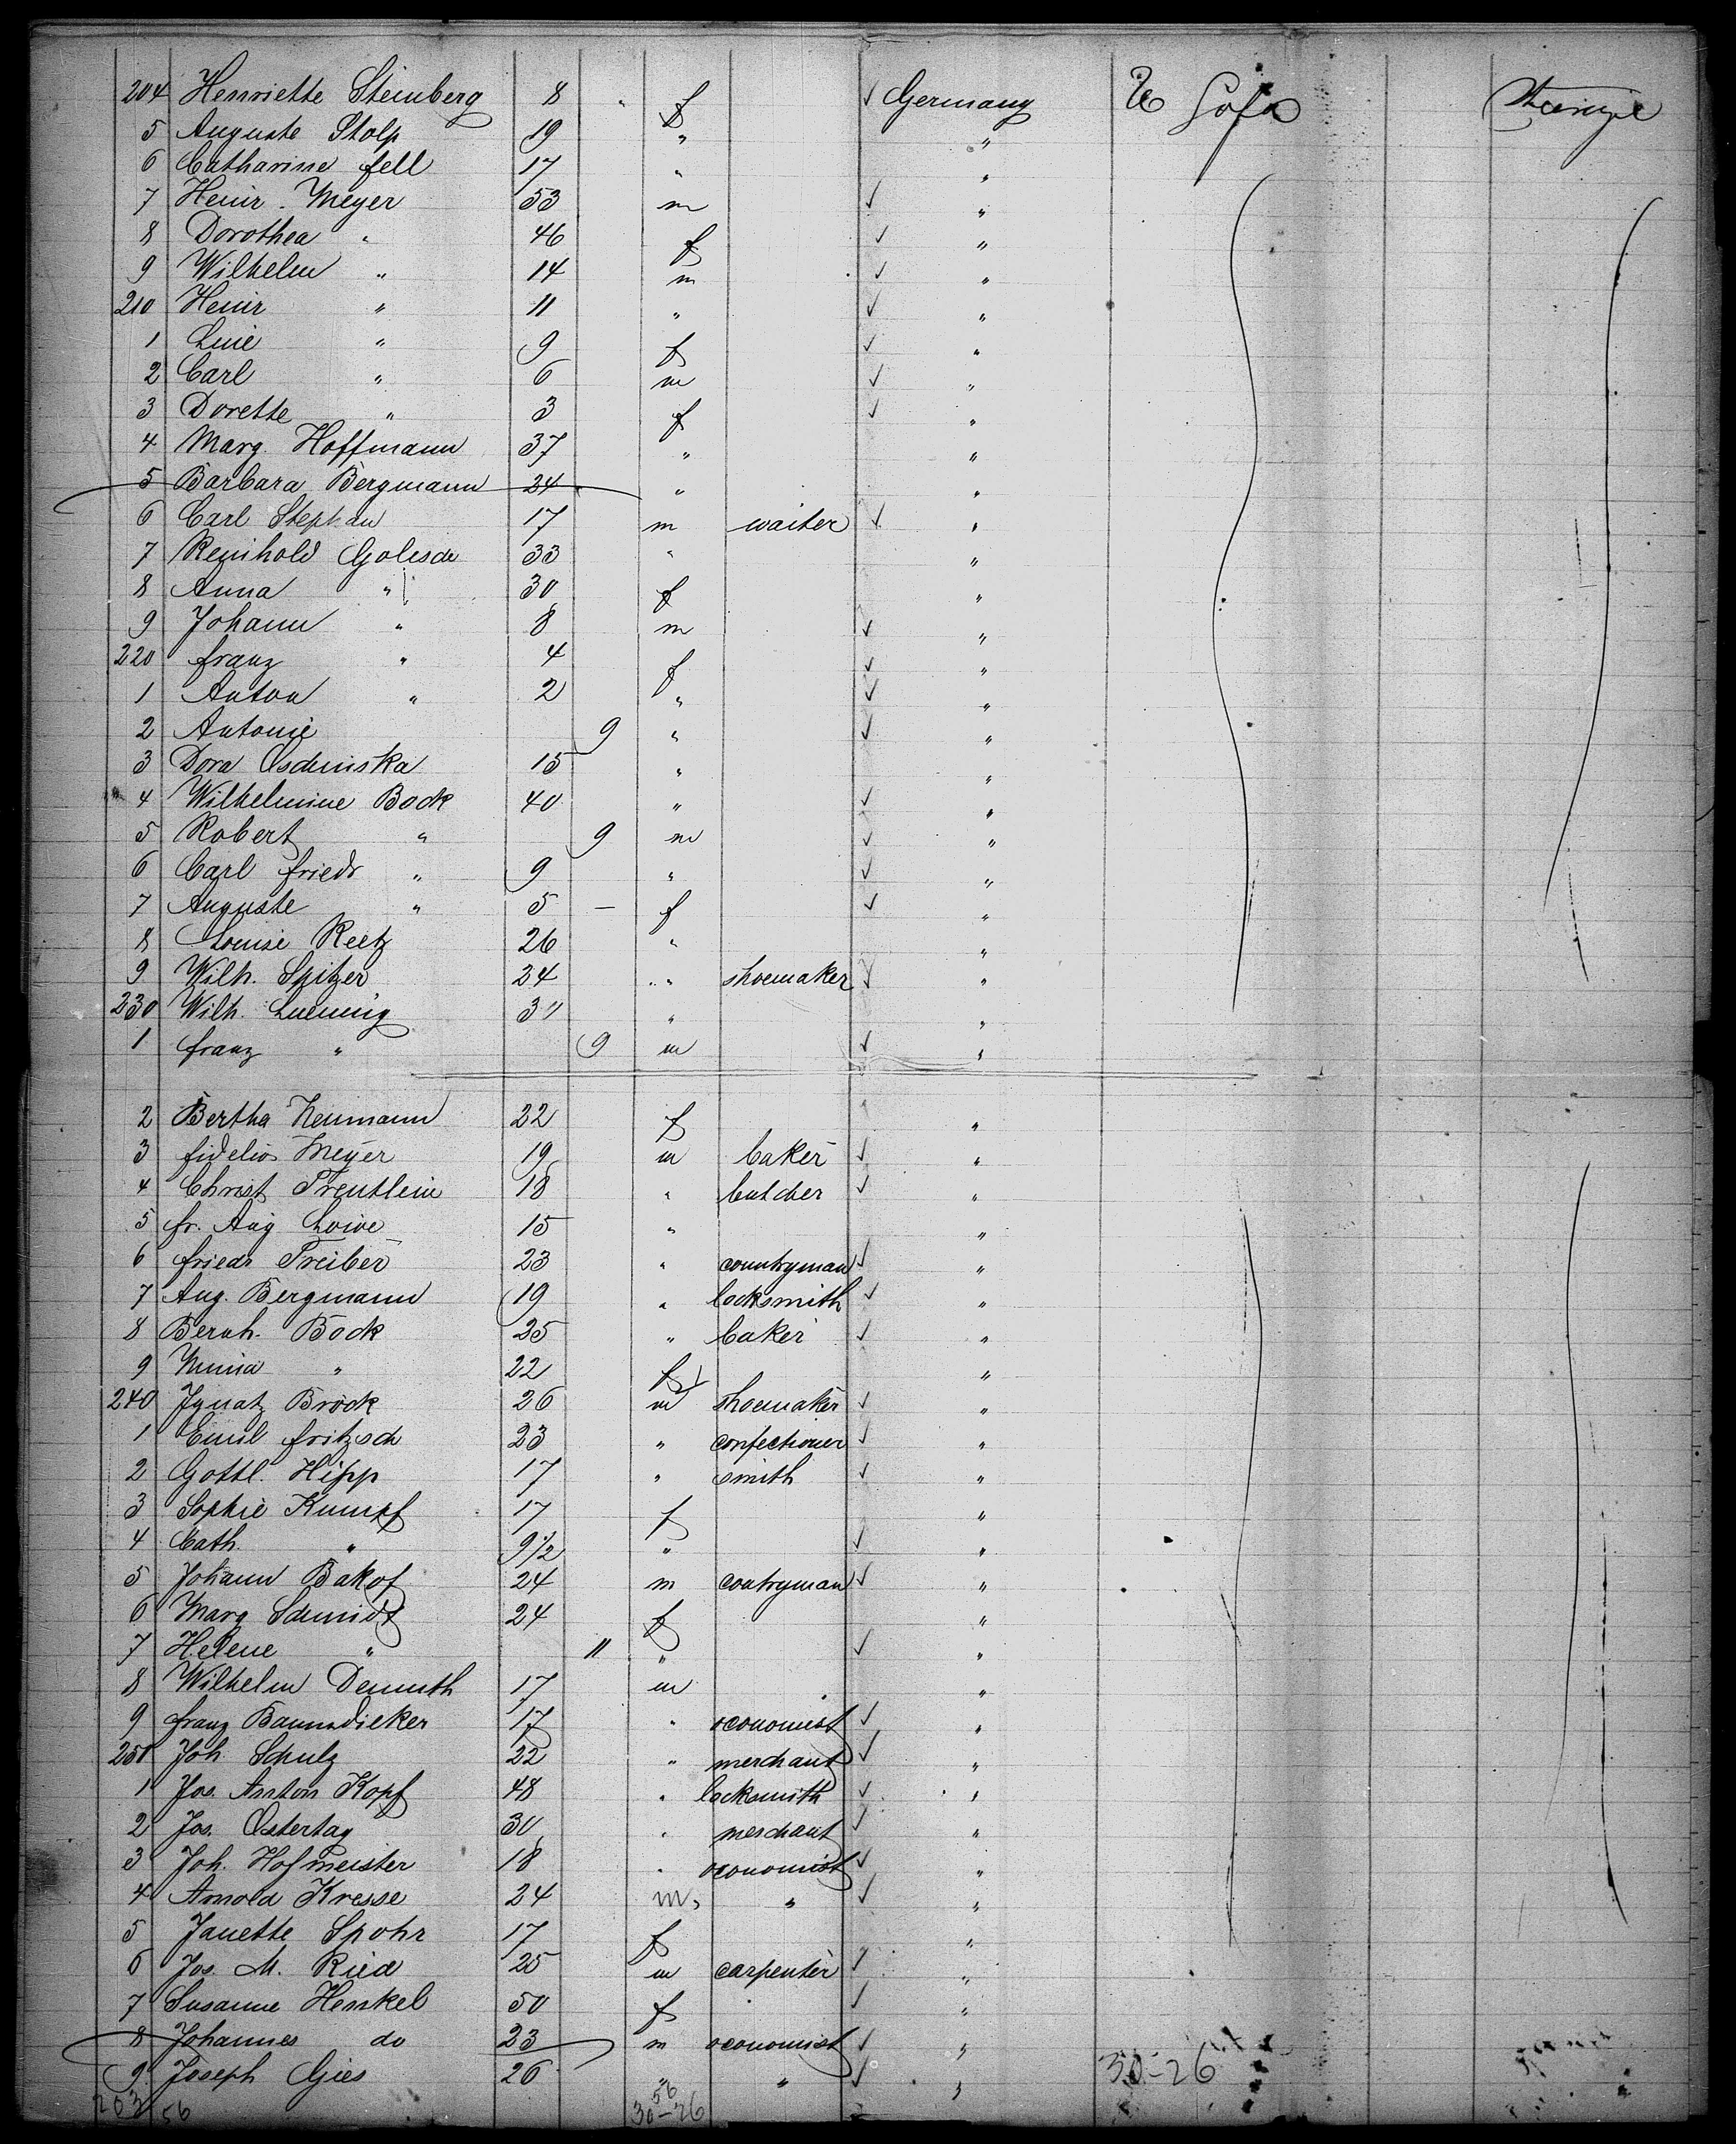 204 Henriette Steinberg 8 f ✓ Germany
5 Auguste Stolp 19 " "
6 Catharine Fell 17 " "
7 Heinr. Meyer 53 m ✓ "
8 Dorothea " 46 f ✓ "
9 Wilhelm " 14 m ✓ "
210 Heinr " 11 " ✓ "
1 Line " 9 f ✓ "
2 Carl " 6 m ✓ "
3 Dorette " 3 f ✓ "
4 Marg. Hoffmann 37 " "
5 Barbara Bergmann 24 " "
6 Carl Stephan 17 m waiter ✓ "
7 Reinhold Golisch 33 " "
8 Anna " 30 f "
9 Johann " 8 m ✓ "
220 Franz " 4 f ✓ "
1 Anton " 2 " ✓ "
2 Antonie 9 " ✓ "
3 Dora 15 " "
4 Wilhelmine Bock 40 " ✓ "
5 Robert " 9 m ✓ "
6 Carl Friedr " 9 " ✓ "
7 Auguste " 5 — f ✓ "
8 Louise Reetz 26 " "
9 Wilh. Spitzer 24 " shoemaker ✓ "
230 Wilh. 30 " "
1 Franz " 9 m ✓ "
2 Bertha Neumann 22 f "
3 Fidelio Meyer 19 m baker ✓ "
4 Christ Treutlein 18 " butcher ✓ "
5 Fr. Aug 15 " "
6 Friedr Treiber 23 " countryman ✓ "
7 Aug. Bergmann 19 " locksmith ✓ "
8 Bernh. Bock 25 " baker ✓ "
9 Minna " 22 f "
240 Ignatz Brock 26 m shoemaker ✓ "
1 Emil Fritzsch 23 " confectioner ✓ "
2 Gottl. Hipp 17 " smith ✓ "
3 Sophie Kumpf 17 f "
4 Cath. " 9 1/2 " ✓ "
5 Johann Bakof 24 m coutryman ✓ "
6 Marg Schmidt 24 f "
7 Helene " 11 " ✓ "
8 Wilhelm Demuth 17 m "
9 Franz Baumdicker 17 " oconomist ✓ "
250 Joh. Schulz 22 " merchant ✓ "
1 Jos. Anton Kopf 48 " locksmith ✓ "
2 Jos. Ostertag 30 " merchant ✓ "
3 Joh. Hofmeister 18 " oconomist ✓ "
4 Arnold Kresse 24 m. " ✓ "
5 Janette Spohr 17 f "
6 Jos. M. Ried 25 m carpenter ✓ "
7 Susanne Henkel 50 f ✓ "
8 Johannes do 23 m oconomist ✓ "
9 Joseph Gies 26 " " ✓ " 30-26
203 56 56
30-26